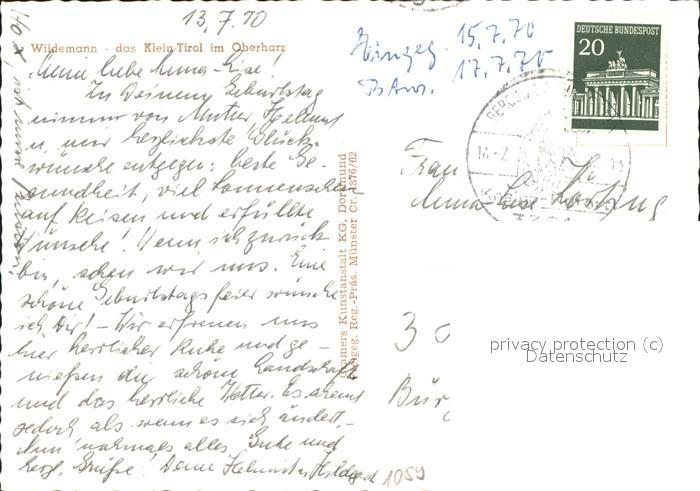 13.7.70
Wildemann - das Klein-Tirol im Oberharz
Meine liebe Anna-Lise!
Zu Deinem Geburtstag
nimm von Mutter, Helmut
u. mir herzlichste Glück-
wünsche entgegen: beste Ge-
sundheit, viel Sonnenschein
auf Reisen und erfüllte
Wünsche! Wenn ich zurück
bin, sehen wir uns. Eine
schöne Geburtstagsfeier wünsche
ich Dir! - Wir erfreuen uns
hier herrlicher Ruhe und ge-
nießen die schöne Landschaft
und das herrliche Wetter. Es scheint
jedoch als wenn es sich ändert. -
Nun nochmals alles Gute und
herzl. Grüße! Deine Helmut u. Hildegard
Cramers Kunstanstalt KG, Dortmund
Freigeg. Reg.-Präs. Münster Cr. 1876/62
Eingeg. 15.7.70
17.7.70
DEUTSCHE BUNDESPOST
20
14.-7.
Frau
Anna-Lise
30
Bür
privacy protection (c)
Datenschutz
1059